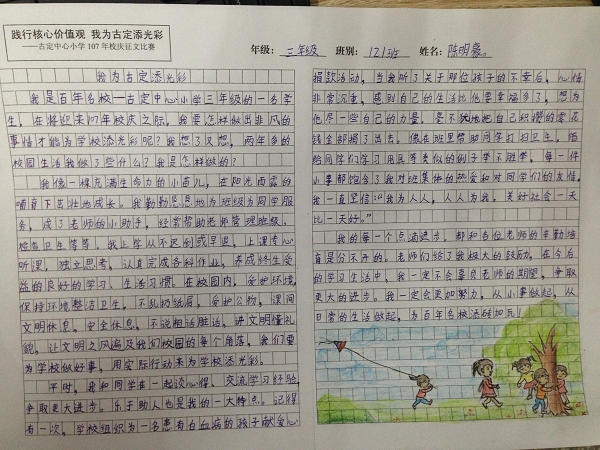 践行核心价值观 我为古定添光彩
——古定中心小学107年校庆征文比赛
年级：三年级 班别：121班 姓名：陈明
我为古定添光彩
我是百年名校—古定中心小学三年级的一名学
生，在将迎来107年校庆之际，我要怎样做出非凡的
事情才能为学校添光彩呢？我想了又想，两年多的
校园生活我做了些什么？我是怎样做的？
我像一棵充满生命力的小苗儿，在阳光雨露的
哺育下茁壮地成长。我勤勤恳恳地为班级为同学服
务，成了老师的小助手，经常帮助老师管理班级，
检查卫生等等。我上学从不迟到或早退，上课专心
听课，独立思考，认真完成各科作业，养成终生受
益的良好的学习、生活习惯。在校园内，爱护环境，
保持环境整洁卫生，不乱扔纸屑，爱护公物，课间
文明休息，安全休息，不说粗话脏话，讲文明懂礼
貌，让文明之风遍及我们校园的每个角落，我们要
为学校做好事，用实际行动来为学校添光彩。
平时，我和同学在一起谈心得，交流学习经验，
争取更大进步。乐于助人也是我的一大特点。记得
有一次，学校组织为一名患有白血病的孩子献爱心
捐款活动，当我听了关于那位孩子的不幸后，心情
非常沉重，感到自己的生活比他要幸福多了，想为
他尽一些自己的力量，毫不犹地把自己积攒的零花
钱全部捐了出去。像在班里帮助同学打扫卫生，借
给同学们学习用具等类似的例子举不胜举，每一件
小事都饱含了我对班集体的热爱和对同学们的友情。
我一直坚信：“我为人人，人人为我。美好社会一天
比一天好。”
我的每一个点滴进步，都和各位老师的辛勤培
育是分不开的。老师们给了我极大的鼓励。在今后
的学习生活中，我一定不会辜负老师的期望，争取
更大的进步。我一定会更加努力，从小事做起，从
日常的生活做起，为百年名校添砖加瓦！